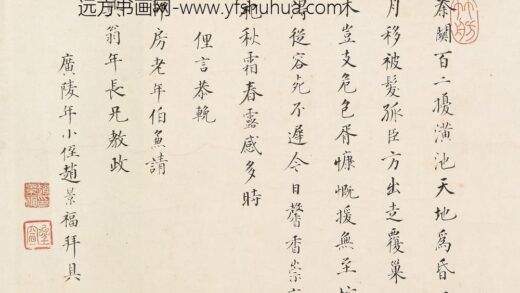 远方书画网 www.yfshuhua.com
秦關百二擾潢池天地為昏
月移被髮孤臣方出走覆巢
木豈支危色胥慷慨援無至
萬從容死不遲今日馨香崇
祀秋霜春露感多時
俚言恭輓
房老年伯兼請
翁年長兄教政
廣陵年小侄趙景福拜具